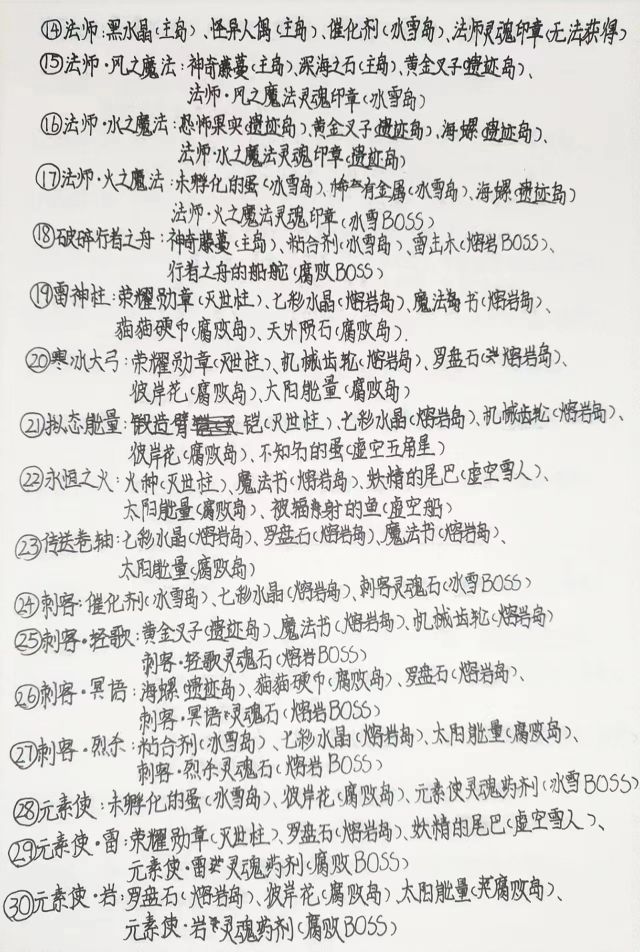 ⑭法师:黑水晶(主岛)、怪异人偶(主岛)、催化剂(冰雪岛)、法师灵魂印章(无法获得)
⑮法师·风之魔法:神奇藤蔓(主岛)、深海之石(主岛)、黄金叉子(遗迹岛)、
法师·风之魔法灵魂印章(冰雪岛)
⑯法师·水之魔法:恐怖果实(遗迹岛)、黄金叉子(遗迹岛)、海螺(遗迹岛)、
法师·水之魔法灵魂印章(遗迹岛)
⑰法师·火之魔法:未孵化的蛋(冰雪岛)、稀有金属(冰雪岛)、海螺(遗迹岛)
法师·火之魔法灵魂印章(冰雪BOSS)
⑱破碎行者之舟:神奇藤蔓(主岛)、粘合剂(冰雪岛)、雷击木(熔岩BOSS)、
行者之舟的船舵(腐败BOSS)
⑲雷神柱:荣耀勋章(灭世柱)、七彩水晶(熔岩岛)、魔法书(熔岩岛)、
猫猫硬币(腐败岛)、天外陨石(腐败岛).
⑳寒冰大弓:荣耀勋章(灭世柱)、机械齿轮(熔岩岛)、罗盘石(熔岩岛)、
彼岸花(腐败岛)、太阳能量(腐败岛)
㉑拟态能量:锻造臂铠(灭世柱)、七彩水晶(熔岩岛)、机械齿轮(熔岩岛)、
彼岸花(腐败岛)、不知名的蛋(虚空五角星)
㉒永恒之火:火种(灭世柱)、魔法书(熔岩岛)、妖精的尾巴(虚空雪人)、
太阳能量(腐败岛)、被辐射的鱼(虚空船)
㉓传送卷轴:七彩水晶(熔岩岛)、罗盘石(熔岩岛)、魔法书(熔岩岛)、
太阳能量(腐败岛)
㉔刺客:催化剂(冰雪岛)、七彩水晶(熔岩岛)、刺客灵魂石(冰雪BOSS)
㉕刺客·轻歌:黄金叉子(遗迹岛)、魔法书(熔岩岛)、机械齿轮(熔岩岛)
刺客·轻歌灵魂石(熔岩BOSS)
㉖刺客·冥语:海螺(遗迹岛)、猫猫硬币(腐败岛)、罗盘石(熔岩岛)、
刺客·冥语灵魂石(熔岩BOSS)
㉗刺客·烈杀:粘合剂(冰雪岛)、七彩水晶(熔岩岛)、太阳能量(腐败岛)、
刺客·烈杀灵魂石(熔岩BOSS)
㉘元素使:未孵化的蛋(冰雪岛)、彼岸花(腐败岛)、元素使灵魂药剂(冰雪BOSS)
㉙元素使·雷:荣耀勋章(灭世柱)、罗盘石(熔岩岛)、妖精的尾巴(虚空雪人)、
元素使·雷灵魂药剂(腐败BOSS)
㉚元素使·岩:罗盘石(熔岩岛)、彼岸花(腐败岛)、太阳能量(腐败岛)、
元素使·岩灵魂药剂(腐败BOSS)